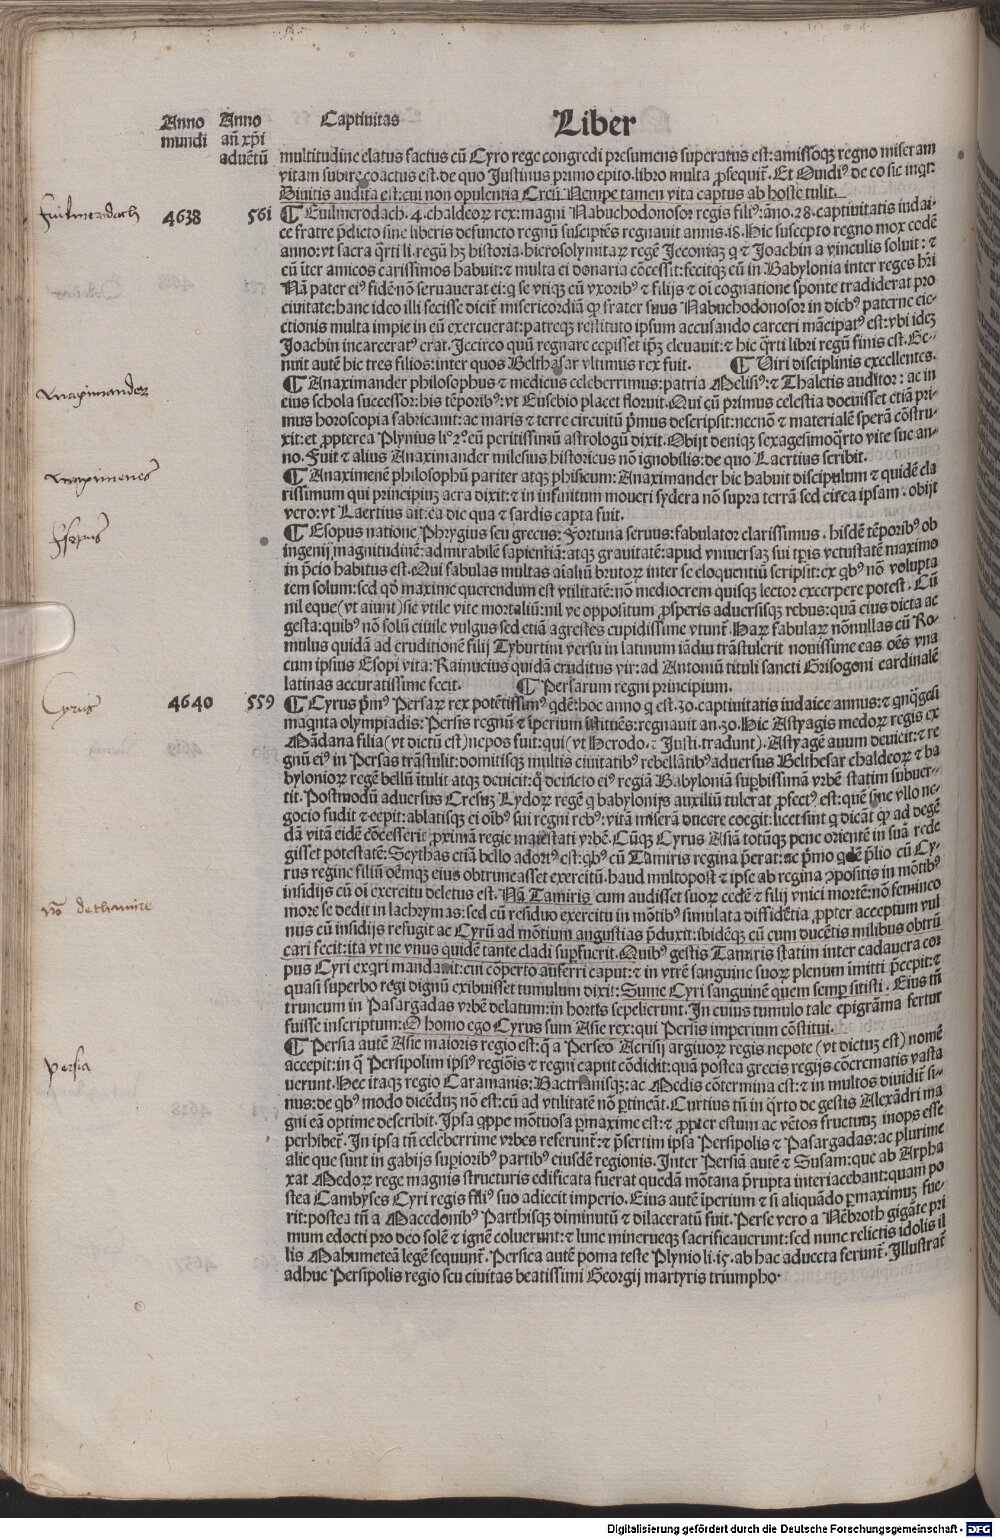 Anno mundi
Anno añ xp̄i aduētū
Captiuitas
Liber
multitudine elatus factus eū Cyro rege congredi presumens superatus est: amissoqȝ regno miseram
vitam subire coactus est. de quo Justinus primo epito. libro multa ꝓsequit̄. Et Ouidiꝰ de eo sic inqt:
Diuitis audita est: cui non opulentia Cresi: Nempe tamen vita captus ab hoste tulit.
Euilmerodach
4638
561
¶ Euilmerodach. 4. chaldeoꝝ rex: magni Nabuchodonosor regis filiꝰ: āno. 28. captiuitatis iudai-
ce fratre p̄dicto sine liberis defuncto regnū suscipiēs regnauit annis. 18. Hic suscepto regno mox eodē
anno: vt sacra q̄rti li. regū hȝ historia. hierosolymitaꝝ regē Jeconiaȝ q̄ ⁊ Joachin a vinculis soluit: ⁊
eū īter amicos carissimos habuit: ⁊ multa ei donaria cōcessit: fecitqȝ eū in Babylonia inter reges hr̄i
Nā pater eiꝰ fidē nō seruauerat ei: q̄ se vtiqȝ cū vxoribꝰ ⁊ filijs ⁊ oī cognatione sponte tradiderat pro
ciuitate: hanc ideo illi fecisse dicit̄ misericordiā qꝫ frater suus Nabuchodonosor in diebꝰ paterne eie-
ctionis multa impie in eū exercuerat: patreqȝ restituto ipsum accusando carceri mācipatꝰ est: vbi ideȝ
Joachin incarceratꝰ erat. Jccirco quū regnare cepisset ip̄ȝ eleuauit: ⁊ hic q̄rti libri regū finis est. Ge-
nuit autē hic tres filios: inter quos Belthasar vltimus rex fuit. ¶ Uiri disciplinis excellentes.
Anaximander
¶ Anaximander philosophus ⁊ medicus celeberrimus: patria Melisiꝰ: ⁊ Thaletis auditor: ac in
eius schola successor: his tēporibꝰ: vt Eusebio placet floruit. Qui cū primus celestia docuisset etiā pri-
mus horoscopia fabricauit: ac maris ⁊ terre circuitū p̄mus descripsit: necnō ⁊ materialē sperā cōstru-
xit: et ꝓpterea Plynius li. 2. eū peritissimū astrologū dixit. Obijt deniqȝ sexagesimoq̄rto vite sue an-
no. Fuit ⁊ alius Anaximander milesius historicus nō ignobilis: de quo Laertius scribit.
Anaximenes
¶ Anaximenē philosophū pariter atqȝ phisicum: Anaximander hic habuit discipulum ⁊ quidē cla
rissimum qui principiuȝ aera dixit: ⁊ in infinitum moueri sydera nō supra terrā sed circa ipsam. obijt
vero: vt Laertius ait: ea die qua ⁊ sardis capta fuit.
Esopus
¶ Esopus natione Phrygius seu grecus: Fortuna seruus: fabulator clarissimus. hisdē tēporibꝰ ob
ingenij magnitudinē: admirabilē sapientiā: atqȝ grauitatē: apud vniuersaȝ sui tp̄is vetustatē maximo
in p̄cio habitus est. Qui fabulas multas aīaliū brutoꝝ inter se eloquentiū scripsit: ex qbꝰ nō volupta
tem solum: sed qd̄ maxime querendum est vtilitatē: nō mediocrem quisqȝ lector excerpere potest. Cū
nil eque (vt aiunt) sic vtile vite mortaliū: nil ve oppositum ꝓsperis aduersisqȝ rebus: quā eius dicta ac
gesta: quibꝰ nō solū ciuile vulgus sed etiā agrestes cupidissime vtunt̄. Haꝝ fabulaꝝ nōnullas eū Ro-
mulus quidā ad eruditionē filij Tyburtini versu in latinum iādiu trāstulerit nouissime eas oēs vna
cum ipsius Esopi vita: Rainucius quidā eruditus vir: ad Antoniū tituli sancti Grisogoni cardinalē
latinas accuratissime fecit. ¶ Persarum regni principium.
Cyrus
4640
559
¶ Cyrus p̄mꝰ Persaꝝ rex potētissimꝰ qdē: hoc anno q̄ est. 30. captiuitatis iudaice annus: ⁊ qnq̄gesi
maqnta olympiadis: Persis regnū ⁊ īperium īstituēs: regnauit an. 30. Hic Astyagis medoꝝ regis ex
Mādana filia (vt dictū est) nepos fuit: qui (vt Herodo. ⁊ Justi. tradunt). Astyagē auum deuicit: ⁊ re
gnū eiꝰ in Persas trāstulit: domitisqȝ multis ciuitatibꝰ rebellātibꝰ aduersus Belthesar chaldeoꝝ ⁊ ba
byloniorꝝ regē bellū ītulit atqȝ deuicit: q̄ deuicto eiꝰ regiā Babyloniā supbissimā vrbē statim subuer-
tit. Postmodū aduersus Cresuȝ Lydoꝝ regē q̄ babylonijs auxiliū tulerat ꝓfectꝰ est: quē sine vllo ne-
gocio fudit ⁊ cepit: ablatisqȝ ei oībꝰ sui regni rebꝰ: vitā miserā ducere coegit: licet sint q̄ dicāt qꝫ ad degē
dā vitā eidē cōcesserit ꝓximā regie maiestati vrbē. Cūqȝ Cyrus Asiā totūqȝ pene orientē in suā rede
gisset potestatē: Scythas etiā bello adortꝰ est: qbꝰ cū Tamiris regina p̄erat: ac p̄mo qdē p̄lio cū Cy-
rus regine filiū oēmqȝ eius obtruncasset exercitū. haud multopost ⁊ ipse ab regina ꝓpositis in mōtibꝰ
insidijs cū oī exercitu deletus est. Nā Tamiris cum audisset suoꝝ cedē ⁊ filij vnici mortē: nō femineo
more se dedit in lachrymas: sed cū residuo exercitu in mōtibꝰ simulata diffidētia ꝓpter acceptum vul
nus cū insidijs refugit ac Cyrū ad mōtium angustias p̄duxit: ibidēqȝ cū cum ducētis milibus obtrū
cari fecit: ita vt ne vnus quidē tante cladi supfuerit. Quibꝰ gestis Tamiris statim inter cadauera cor
no de thamire
pus Cyri exqri mandauit: cui coperto auferri caput: ⁊ in vtrē sanguine suoꝝ plenum īmitti p̄cepit: ⁊
quasi superbo regi dignū exibuisset tumulum dixit: Sume Cyri sanguinē quem semp sitisti. Eius tn̄
truncum in Pasargadas vrbē delatum: in hortis sepelierunt. In cuius tumulo tale epigrāma fertur
fuisse inscriptum: O homo ego Cyrus sum Asie rex: qui Persis imperium cōstitui.
Persia
¶ Persia autē Asie maioris regio est: q̄ a Perseo Acrisij argiuoꝝ regis nepote (vt dictuȝ est) nomē
accepit: in q̄ Persipolim ipsiꝰ regiōis ⁊ regni caput cōdidit: quā postea grecis regijs cōcrematis vasta
uerunt. Hec itaqȝ regio Caramanis: Bactrianisqȝ: ac Medis cōtermina est: ⁊ in multos diuidit̄ si-
nus: de qbꝰ modo dicēduȝ nō est: cū ad vtilitatē nō ꝑtineāt. Curtius tn̄ in q̄rto de gestis Alexādri ma
gni eā optime describit. Ipsa q̄ppe mōtuosa ꝑmaxime est: ⁊ ꝓpter estum ac vētos fructuuȝ inops esse
perhibet̄. In ipsa tn̄ celeberrime vrbes reserunt̄: ⁊ p̄sertim ipsa Persipolis ⁊ Pasargadas: ac plurime
alie que sunt in gabijs supioribꝰ partibꝰ eiusdē regionis. Inter Persiā autē ⁊ Susam: que ab Arpha
xat Medoꝝ rege magnis structuris edificata fuerat quedā mōtana p̄rupta interiacebant: quam po
stea Cambyses Cyri regis filiꝰ suo adiecit imperio. Eius autē īperium ⁊ si aliquādo ꝑmaximuȝ fue-
rit: postea tn̄ a Macedonibꝰ Parthisqȝ diminutū ⁊ dilaceratū fuit. Perse vero a Nēbroth gigāte pri
mum edocti pro deo solē ⁊ ignē coluerunt: ⁊ lune minerueqȝ sacrificauerunt: sed nunc relictis idolis il
lis Mahumeteā legē sequunt̄. Persica autē poma teste Plynio li. 15. ab hac aduecta ferunt̄. Illustrat̄
adhuc Persipolis regio seu ciuitas beatissimi Georgij martyris triumpho.
Digitalisierung gefördert durch die Deutsche Forschungsgemeinschaft - DFG